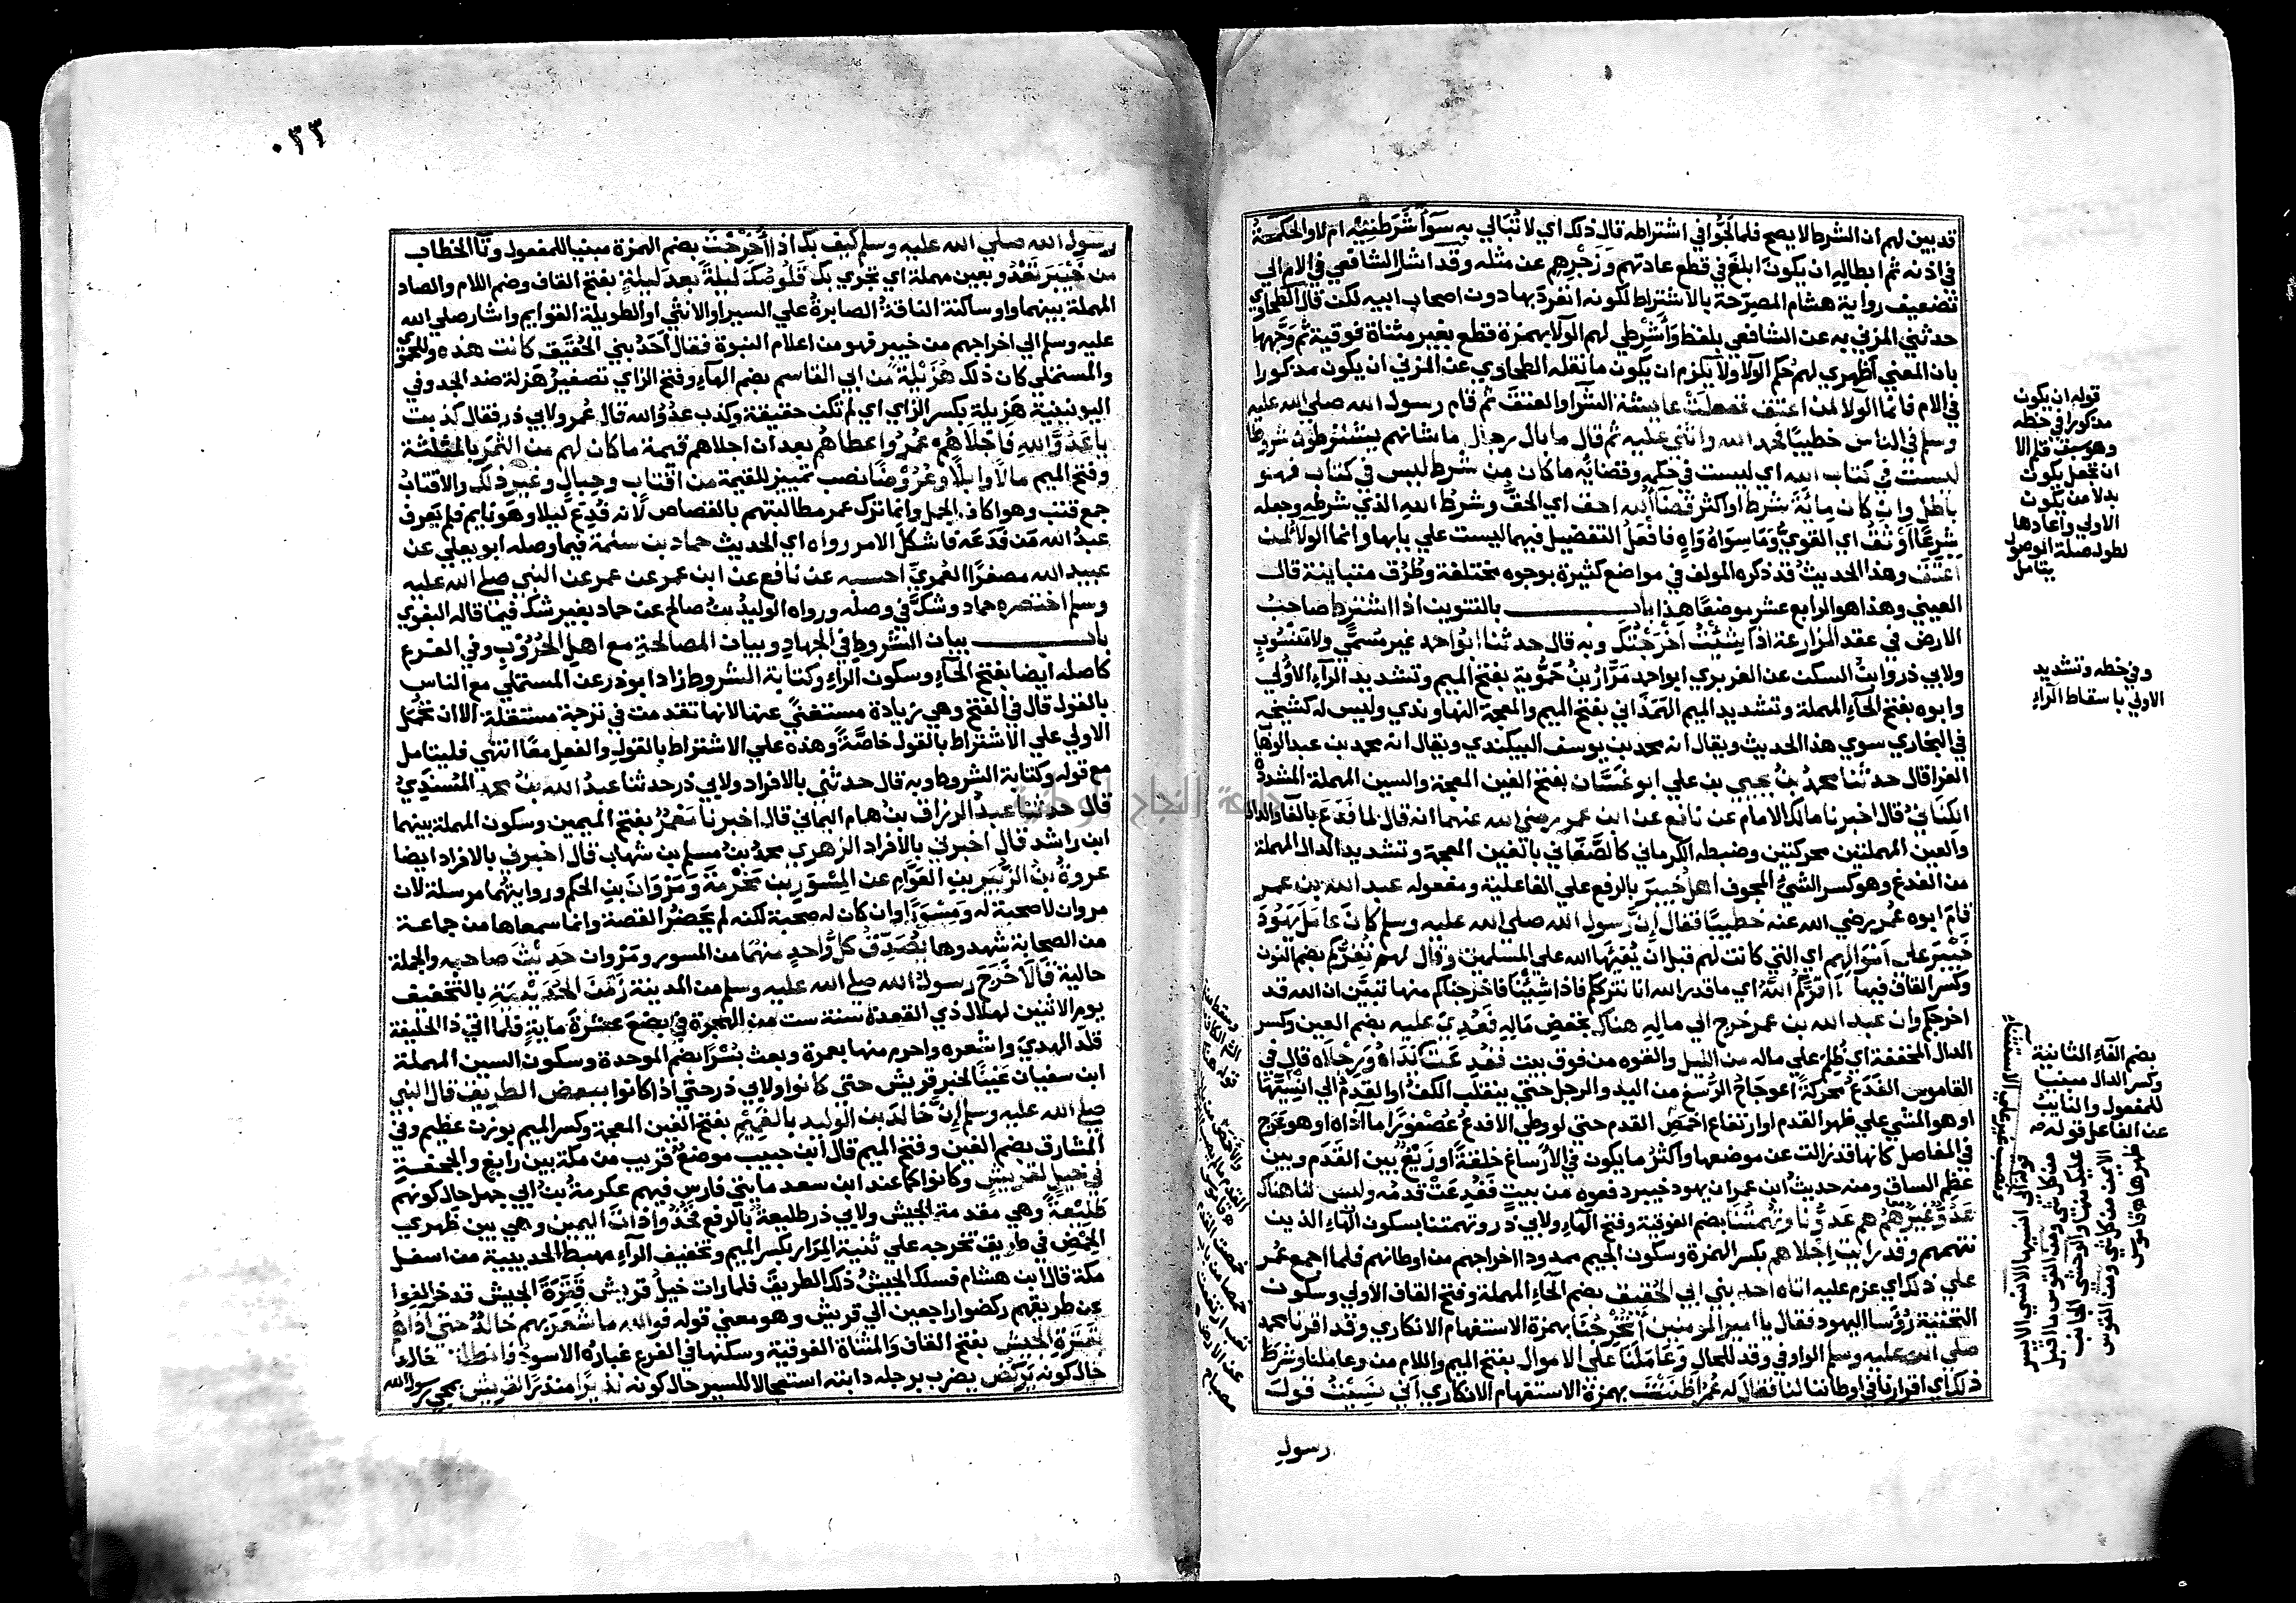 قد بين لهم ان الشرط لا يصح فلما لجوا في اشتراطه قال ذلك اي لا تبالي به سوآ شرطتيه ام لا والحكمة
في اذنه ثم ابطاله ان يكون ابلغ في قطع عادتهم وزجرهم عن مثله وقد اشار الشافعي في الام الي
تضعيف رواية هشام المصرحة بالاشتراط لكونه انفرد بها دون اصحاب ابيه لكن قال الطحاوي
حدثني المزني به عن الشافعي بلفظ واشرطي لهم الولا بهمزة قطع بغير مثناة فوقية ثم وجهها
بان المعني اظهري لهم حكم الولا ولا يلزم ان يكون ما نقله الطحاوي عن المزني ان يكون مذكورا
في الام فانما الولا لمن اعتق ففعلت عايشة الشرآ والعتق ثم قام رسول الله صلي الله عليه
وسلم في الناس خطيبا فحمد الله واثني عليه ثم قال ما بال رجال ما شانهم يشترطون شروطا
ليست في كتاب الله اي ليست في حكمه وقضايه ما كان من شرط ليس في كتاب فهو
باطل وان كان ماية شرط او اكثر قضآ الله احق اي الحق وشرط الله الذي شرطه وجعله
شرعا اوثق اي القوي وما سواه واه فافعل التفضيل فيهما ليست علي بابها وانما الولا لمن
اعتق وهذا الحديث قد ذكره المولف في مواضع كثيرة بوجوه مختلفة وطرق متباينة قال
العيني وهذا هو الرابع عشر موضعا هذا باب بالتنوين اذا اشترط صاحب
الارض في عقد المزارعة اذا شيئت اخرجتك وبه قال حدثنا ابو احمد غير مسمي ولا منسوب
ولابي ذر وابن السكن عن الفربري ابو احمد مرار بن حموية بفتح الميم وتشديد الرآء الاولي
وابوه بفتح الحآء المهملة وتشديد الميم الهمذاني بفتح الميم والمعجة النهاوندي وليس له كشيخه
في البخاري سوي هذا الحديث ويقال انه محمد بن يوسف البيكندي ويقال انه محمد بن عبد الوهاب
الفرا قال حدثنا محمد بن يحيي بن علي ابو غسان بفتح الغين المعجة والسين المهملة المشددة
الكناني قال اخبرنا مالك الامام عن نافع عن ابن عمر رضي الله عنهما انه قال لما فدع بالفآ والدال
والعين المهملتين محركتين وضبطه الكرماني كالصغاني بالغين المعجة وتشديد الدال المهملة
من الفدغ وهو كسر الشيء المجوف اهل خيبر بالرفع علي الفاعلية ومفعوله عبد الله بن عمر
قام ابوه عمر رضي الله عنه خطيبا فقال ان رسول الله صلي الله عليه وسلم كان عامل يهود
خيبر علي اموالهم اي التي كانت لهم قبل ان يفيها الله علي المسلمين وقال لهم نقركم بضم النون
وكسر القاف فيها ما اقركم الله اي ما قدر الله انا نترككم فاذا شئنا فاخرجناكم منها تبين ان الله قد
اخرجكم وان عبد الله بن عمر خرج الي ماله هناك بخفض ماله فعدي عليه بضم العين وكسر
الدال المخففة اي ظلم علي ماله من الليل والقوه من فوق بيت ففدعت يداه ورجلاه قال في
القاموس الفدع محركة اعوجاج الرسغ من اليد والرجل حتي ينقلب الكف او القدم الي انسيها
او هو المشي علي ظهر القدم او ارتفاع اخمص القدم حتي لو وطي الافدع عصفورا ما اذاه او هو عوج
في المفاصل كانها قد زالت عن موضعها واكثر ما يكون في الارساغ خلقة او زيغ بين القدم وبين
عظم الساق ومنه حديث ابن عمر ان يهود خيبر دفعوه من بيت ففدعت قدمه وليس لنا هناك
عدو غيرهم هم عدونا وتهمتنا بضم الفوقية وفتح الهآء ولابي ذر وتهمتنا بسكون الهآء الذين
نتهمهم وقد رايت اجلاهم بكسر الهمزة وسكون الجيم ممدودا اخراجهم من اوطانهم فلما اجمع عمر
علي ذلك اي عزم عليه اتاه احد بني ابي الحقيق بضم الحآء المهملة وفتح القاف الاولي وسكون
التحتية رؤسا اليهود فقال يا امير المومنين اتخرجنا بهمزة الاستفهام الانكاري وقد اقرنا محمد
صلي الله عليه وسلم الواو في وقد للحال وعاملنا علي الاموال بفتح الميم واللام من وعاملنا وشرط
ذلك اي اقرارنا في اوطاننا لنا فقال له عمر اظننت بهمزة الاستفهام الانكاري اني نسيت قول
رسول
قوله ان يكون
مذكورا في خطه
وهو سبق قلم الا
ان تجعل يكون
بدلا من يكون
الاولي واعادها
لطول صلة الموصول
يتامل
وفي خطه وتشديد
الاولي باسقاط الرآء
بضم الفآء الثانية
وكسر الدال مبنيا
للمفعول والنايب
عن الفاعل قوله
٠٣٣
رسول الله صلي الله عليه وسلم كيف بك اذا اخرجت بضم الهمزة مبنيا للمفعول وتآ الخطاب
من خيبر تعدو بعين مهملة اي تجري بك قلوصك ليلة بعد ليلة بفتح القاف وضم اللام والصاد
المهملة بينهما واو ساكنة الناقة الصابرة علي السير او الانثي او الطويلة القوايم واشار صلي الله
عليه وسلم الي اخراجهم من خيبر فهو من اعلام النبوة فقال احد بني الحقيق كانت هذه وللحموي
والمستملي كان ذلك هزيلة من ابي القاسم بضم الهآء وفتح الزاي تصغير هزلة ضد الجد وفي
اليونينية هزيلة بكسر الزاي اي لم تكن حقيقة وكذب عدو الله قال عمر ولابي ذر فقال كذبت
يا عدو الله فاجلاهم عمر واعطاهم بعد ان اجلاهم قيمة ما كان لهم من الثمر بالمثلثة
وفتح الميم مالا وابلا وعروضا نصب تمييز للقيمة من اقتاب وحبال وغير ذلك والاقتاب
جمع قتب وهو اكاف الجمل وانما ترك عمر مطالبتهم بالقصاص لانه فدع ليلا وهو نايم فلم يعرف
عبد الله من فدعه فاشكل الامر رواه اي الحديث حماد بن سلمة فيما وصله ابو يعلي عن
عبيد الله مصغرا العمري احسبه عن نافع عن ابن عمر عن عمر عن النبي صلي الله عليه
وسلم اختصره حماد وشك في وصله ورواه الوليد بن صالح عن حماد بغير شك فيما قاله البغوي
باب بيان الشروط في الجهاد وبيان المصالحة مع اهل الحروب وفي الفرع
كاصله ايضا بفتح الحآء وسكون الرآء وكتابة الشروط زاد ابو ذر عن المستملي مع الناس
بالقول قال في الفتح وهي زيادة مستغني عنها لانها تقدمت في ترجمة مستقلة الا ان تحمل
الاولي علي الاشتراط بالقول خاصة وهذه علي الاشتراط بالقول والفعل معا انتهي فليتامل
مع قوله وكتابة الشروط وبه قال حدثني بالافراد ولابي ذر حدثنا عبد الله بن محمد المسندي
قال حدثنا عبد الرزاق بن همام اليماني قال اخبرنا معمر بفتح الميمين وسكون المهملة بينهما
ابن راشد قال اخبرني بالافراد الزهري محمد بن مسلم بن شهاب قال اخبرني بالافراد ايضا
عروة بن الزبير بن العوام عن المسور بن مخرمة ومروان بن الحكم وروايتهما مرسلة لان
مروان لا صحبة له ومسورا وان كان له صحبة لكنه لم يحضر القصة وانما سمعاها من جماعة
من الصحابة شهدوها يصدق كل واحد منهما من المسور ومروان حديث صاحبه والجملة
حالية قالا خرج رسول الله صلي الله عليه وسلم من المدينة زمن الحديبية بالتخفيف
يوم الاثنين لهلال ذي القعدة سنة ست من الهجرة في بضع عشرة ماية فلما اتي ذا الحليفة
قلد الهدي واشعره واحرم منها بعمرة وبعث بسرا بضم الموحدة وسكون السين المهملة
ابن سفيان عينا لخبر قريش حتي كانوا ولابي ذر حتي اذا كانوا ببعض الطريق قال النبي
صلي الله عليه وسلم ان خالد بن الوليد بالغميم بفتح الغين المعجة وكسر الميم بوزن عظيم وفي
المشارق بضم الغين وفتح الميم قال ابن حبيب موضع قريب من مكة بين رابغ والجحفة
في خيل لقريش وكانوا كما عند ابن سعد مايتي فارس فيهم عكرمة بن ابي جهل حال كونهم
طليعة وهي مقدمة الجيش ولابي ذر طليعة بالرفع فخذوا ذات اليمين وهي بين ظهري
الحمض في طريق تخرجه علي ثنية المرار بكسر الميم وتخفيف الرآء مهبط الحديبية من اسفل
مكة قال ابن هشام فسلك الجيش ذلك الطريق فلما رات خيل قريش قترة الجيش قد خالفوا
عن طريقهم ركضوا راجعين الي قريش وهو معني قوله فوالله ما شعر بهم خالد حتي اذا هم
بقترة الجيش بفتح القاف والمثناة الفوقية وسكنها في الفرع غباره الاسود فانطلق خالد
حال كونه يركض يضرب برجله دابته استعجالا للسير حال كونه نذيرا منذرا لقريش بمجي رسول الله
جامعة النجاح الوطنية